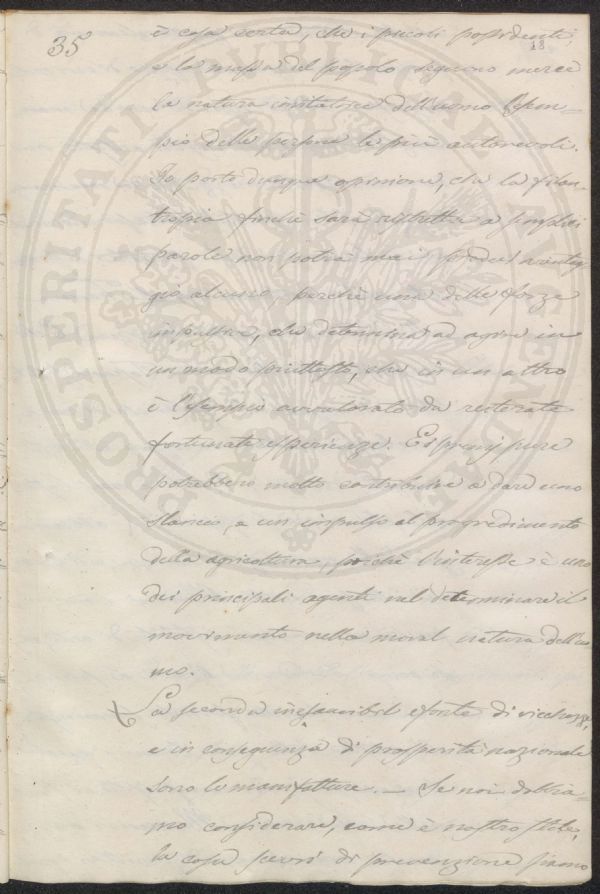 35
18
è cosa certa, che i piccoli possidenti,
e la massa del popolo seguono mercè
la natura imitatrice dell'uomo l'esem-
pio delle persone le più autorevoli.
Io porto dunque opinione, che la filan-
tropia finchè sarà ristretta a semplici
parole non potrà mai produr vantag-
gio alcuno, perchè una delle forze
impulsive, che determina ad agire in
un modo piuttosto, che in un altro
è l'esempio avvalorato da
fortunate esperienze. E i premj pure
potrebbero molto contribuire a dare uno
slancio, e un impulso al progredimento
della agricoltura, poichè l'interesse è uno
dei principali agenti nel determinare il
movimento nella moral natura dell'uo-
mo.
La seconda inesauribil fonte di ricchezza,
e in conseguenza di prosperità nazionale
sono le manifatture. _ Se noi dobbia-
mo considerare, come è nostro stile,
la cosa scevri di prevenzione siamo
PROSPERITATI PUBLICAE AUGENDAE